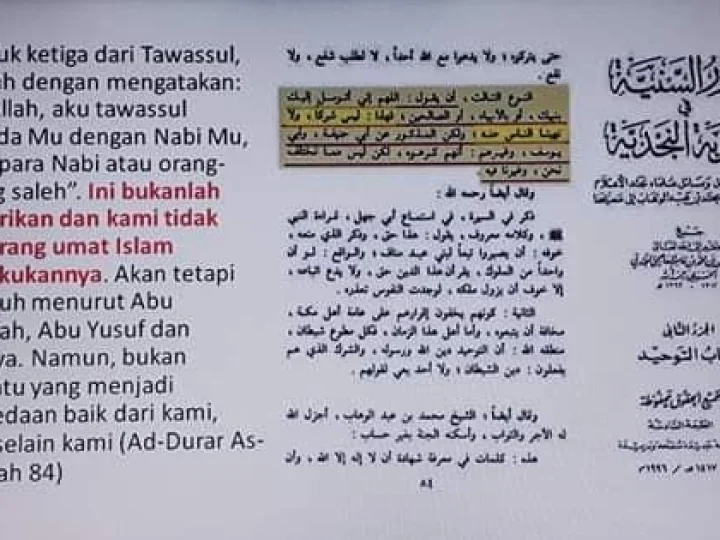 uk ketiga dari Tawassul,
ah dengan mengatakan:
Allah, aku tawassul
da Mu dengan Nabi Mu,
para Nabi atau orang-
g saleh". Ini bukanlah
rikan dan kami tidak
rang umat Islam
kukannya. Akan tetapi
uh menurut Abu
ah, Abu Yusuf dan
ya. Namun, bukan
atu yang menjadi
edaan baik dari kami,
selain kami (Ad-Durar As-
ah 84)
حتى يتركوه؛ ولا يدعوا مع الله أحداً، لا لطلب شفع، ولا
نفع.
النوع الثالث، أن يقول: اللهم إني أتوسل إليك
بنبيك، أو بالأنبياء، أو الصالحين، فهذا: ليس شركاً، ولا
نهينا الناس عنه؛ ولكن المذكور عن أبي حنيفة، وأبي
يوسف، وغيرهم: أنهم كرهوه، لكن ليس مما نختلف
نحن، وغيرنا فيه.
وقال أيضاً رحمه الله:
ذكر في السيرة، في استماع أبي جهل، قراءة النبي
ﷺ، وكلامه معروف، يقول: هذا حق، وذكر الذي منعه،
خوفه: أن يصيروا تبعاً لبني عبد مناف؛ والواقع: لو أن
واحداً من الملوك، يقر أن هذا الدين حق، ولا يدع اتباعه،
إلا خوف أن يزول ملكه، لوجدت النفوس تعذره.
الثانية: كونهم يخفون إقرارهم على عامة أهل مكة،
مخافة أن يتبعوه، وأما أهل هذا الزمان، فكل مطوع شيطان،
منطقه الله: أن التوحيد دين الله ورسوله، والشرك الذي هم
يفعلون: دين الشيطان؛ ولا أحد يعي لقولهم.
وقال أيضاً: الشيخ محمد بن عبد الوهاب، أجزل الله
له الأجر والثواب، وأسكنه الجنة بغير حساب:
هذه: كلمات في معرفة شهادة أن لا إله إلا الله، وأن
٨٤
السنية
في
النجدية
جمع
الجزء الثاني
التوحيد
الطبعة السادسة
١٤١٧ هـ / ١٩٩٦ م